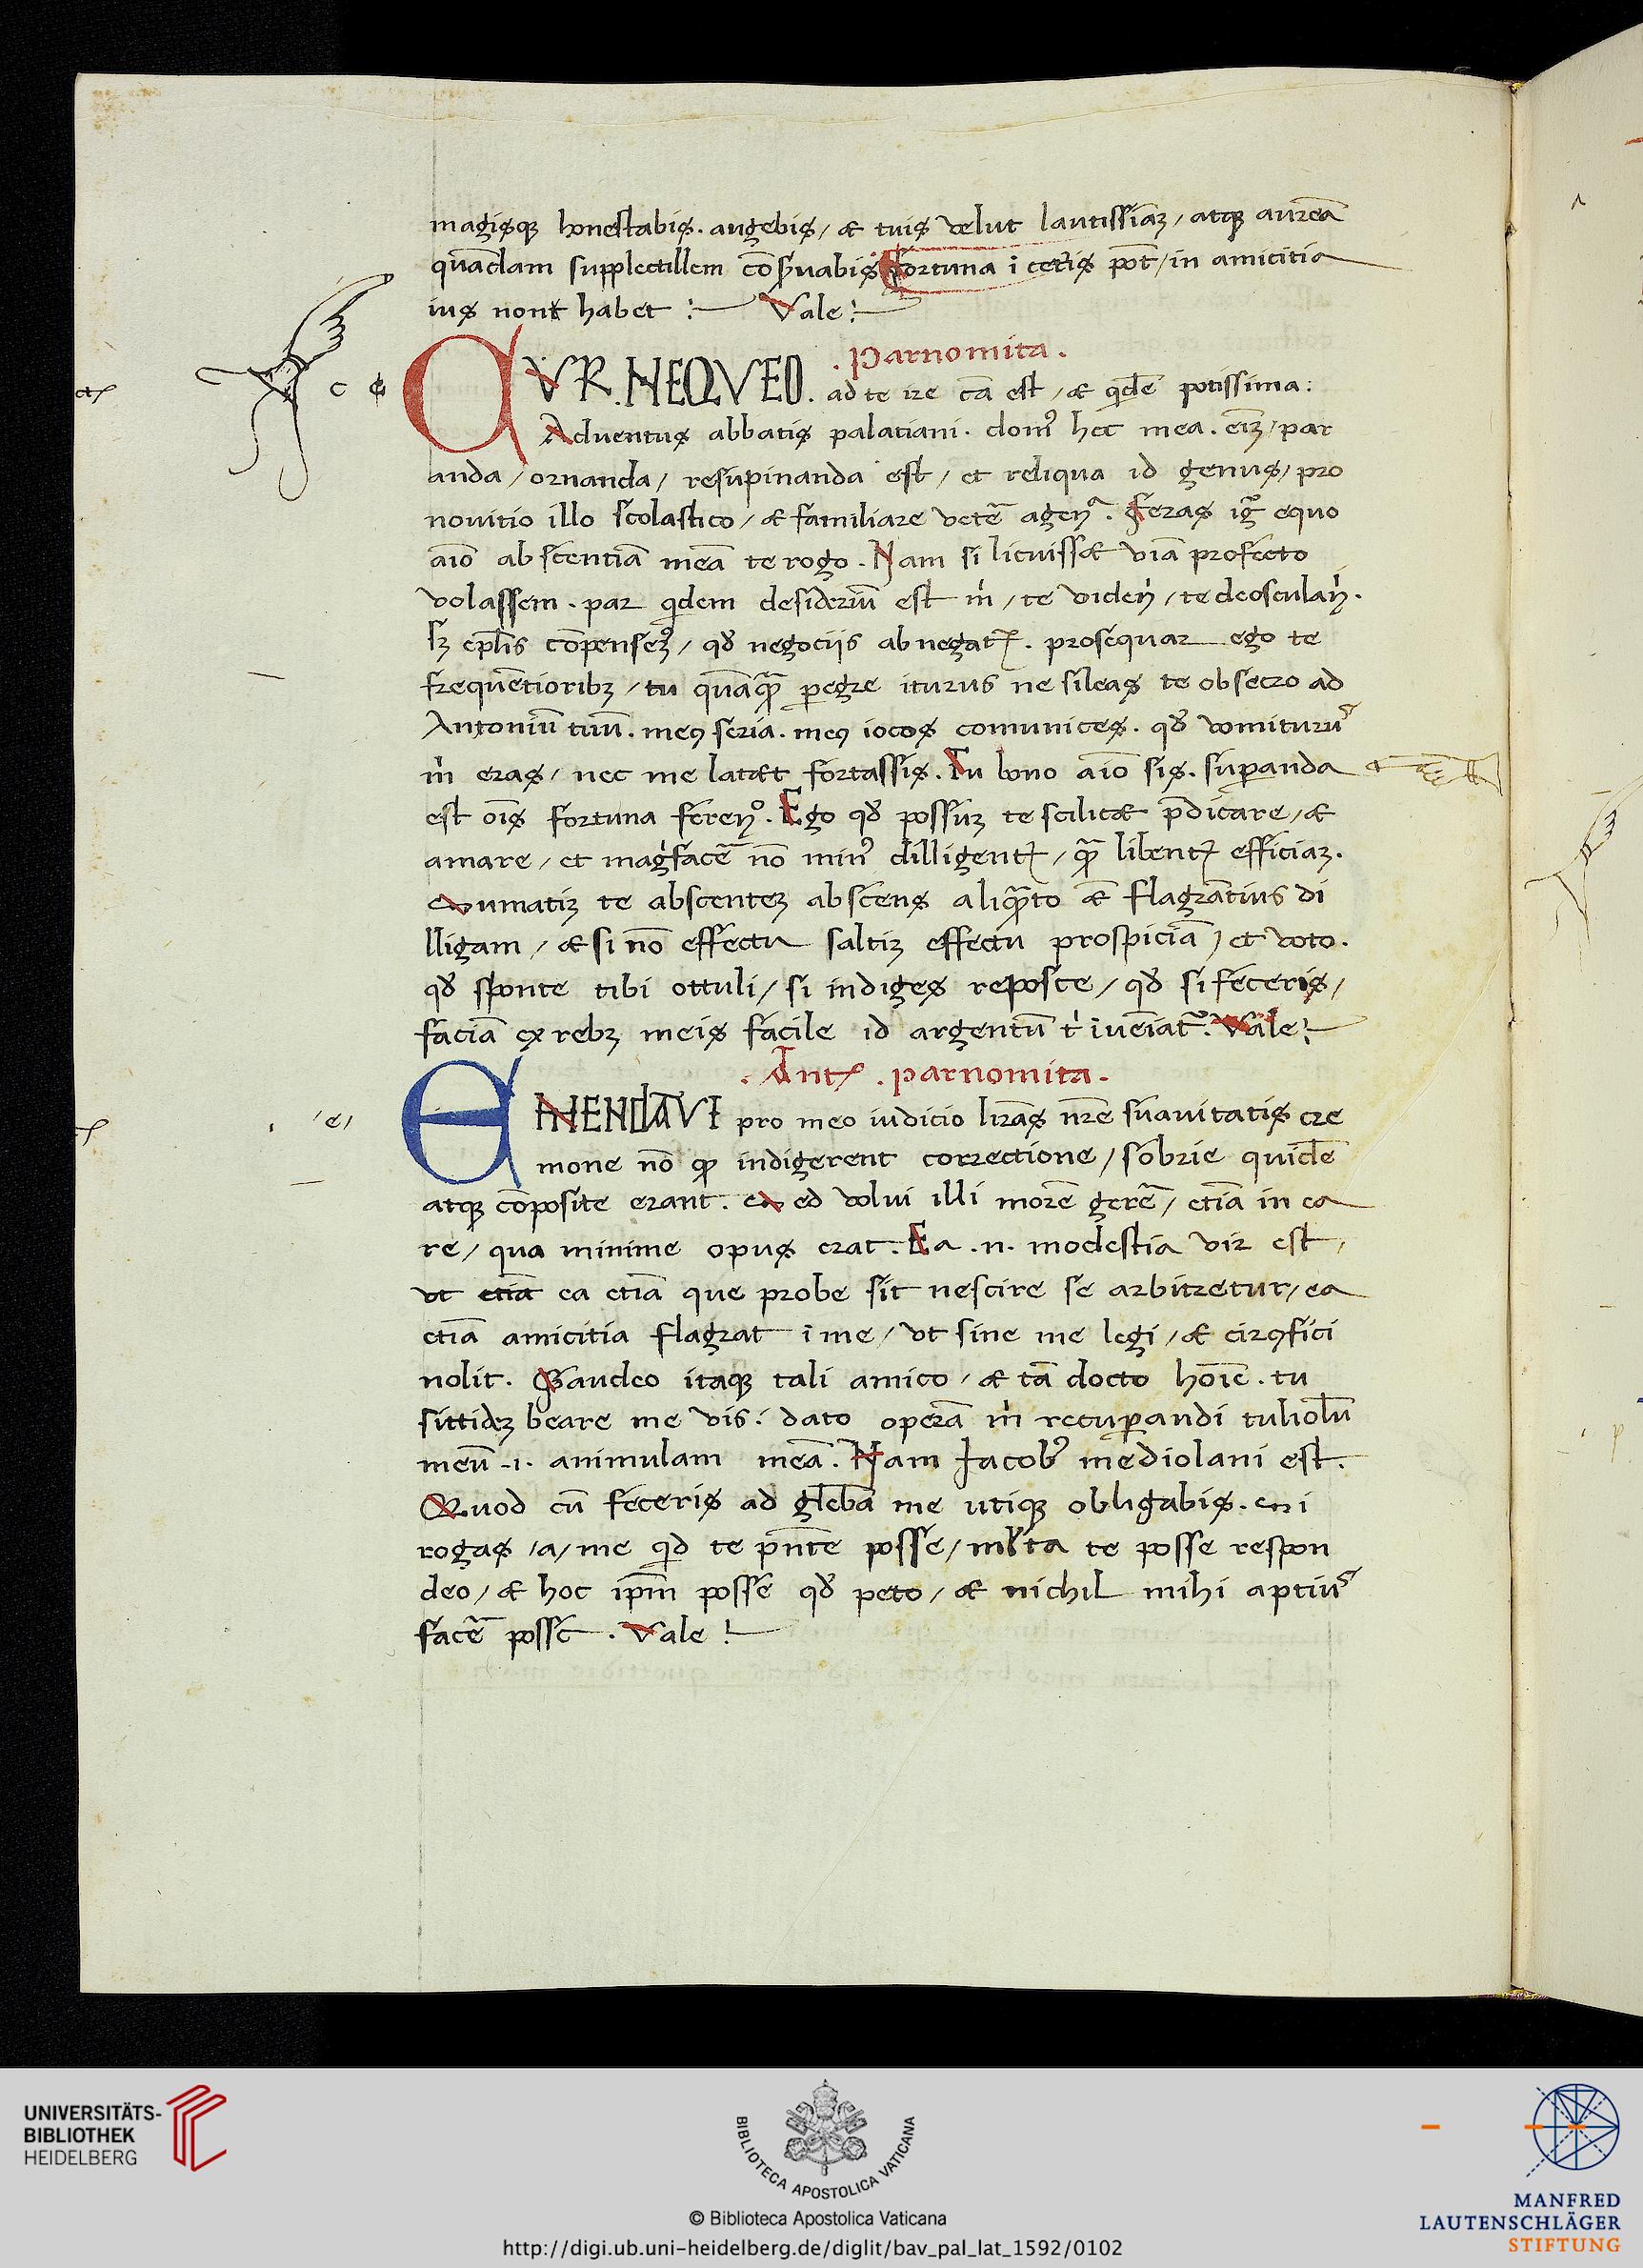 magisqꝫ honestabis. augebis / & tuis velut lautissiāꝫ / atqꝫ aureā
quādam supplectillem cōẜuabis Fortuna ī ceteris pōt / in amicitia
ius nont habet :— Vale :—
. Parnomita .
VR . NEQVEO . ad te ire cā est / & qdē potissima :
c ¢
Aduentus abbatis palatiani . dom⁹ hec mea . eīꝫ / par
anda / ornanda / resupinanda est / et reliqua id genus / pro
nouitio illo scolastico / & familiare veterē agenꝰ . Feras igr̄ equo
aīo abscentiā meā te rogo . Nam si licuisset viā profecto
volassem . par qdem desideriū est m̄ / te videnꝰ / te deosculanꝰ .
sꝫ eplis cōpenseꝫ / qđ negociis abnegatʳ . prosequar ego te
frequētioribꝫ / tu quāqꝫ pegre iturus ne sileas te obsecro ad
Antoniū tuū . meꝯ seria . meꝯ iocos comunices . qđ vomituruˢ
m̄ eras / nec me latæt fortassis . Tu bono aīo sis . supanda
est oīs fortuna ferenꝰ . Ego qđ possuꝫ te scilicet p̄dicare / &
amare / et magꝰfacē nō min⁹ dilligentʳ / qꝫ libentʳ efficiaꝫ .
umatiꝫ te abscenteꝫ abscens aliqꝫto & flagrātius di
lligam / & si nō effectu saltiꝫ effectu prospiciā / et voto .
qđ sponte tibi ottuli / si indiges reposce / qđ si feceris /
faciā ex rebꝫ meis facile id argentū tⁱ īueīatʳ . Vale :—
. Antꝰ . parnomita .
EMENDAVI pro meo iudicio lr̄as nr̄e suauitatis cre
/ e /
mone nō qꝫ indigerent correctione / sobrie quidē
atqꝫ cōposite erant . ed volui illi morē gerē / etiā in ea
re / qua minime opus erat . Ea . n . modestia vir est /
vt etiā ea etiā que probe sit nescire se arbitretur / ea
etiā amicitia flagrat ī me / vt sine me legi / & cirꝯfici
nolit . Gaudeo itaqꝫ tali amico / & tā docto hoīe . tu
sittideꝫ beare me vis . dato operā m̄ recupandi tuliolū
meū .ı. animulam meā . Nam Jacob⁹ mediolani est .
Quod cū feceris ad glebā me utiqꝫ obligabis . i
rogas / a / me qd te pn̄te posse / mlta te posse respon
deo / & hoc ipm̄ posse qđ peto / & nichil mihi aptiuˢ
facē posse . Vale :—
UNIVERSITÄTS-
BIBLIOTHEK
HEIDELBERG
BIBLIOTECA APOSTOLICA VATICANA
© Biblioteca Apostolica Vaticana
http://digi.ub.uni-heidelberg.de/diglit/bav_pal_lat_1592/0102
MANFRED
LAUTENSCHLÄGER
STIFTUNG